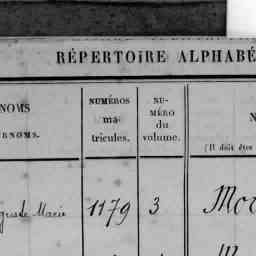 RÉPERTOIRE ALPHABÉ
NOMS
RNOMS.
NUMÉROS
ma-
tricules.
NU-
MÉRO
du
volume.
N
(Il doit être
Marie 1179 3 Mor